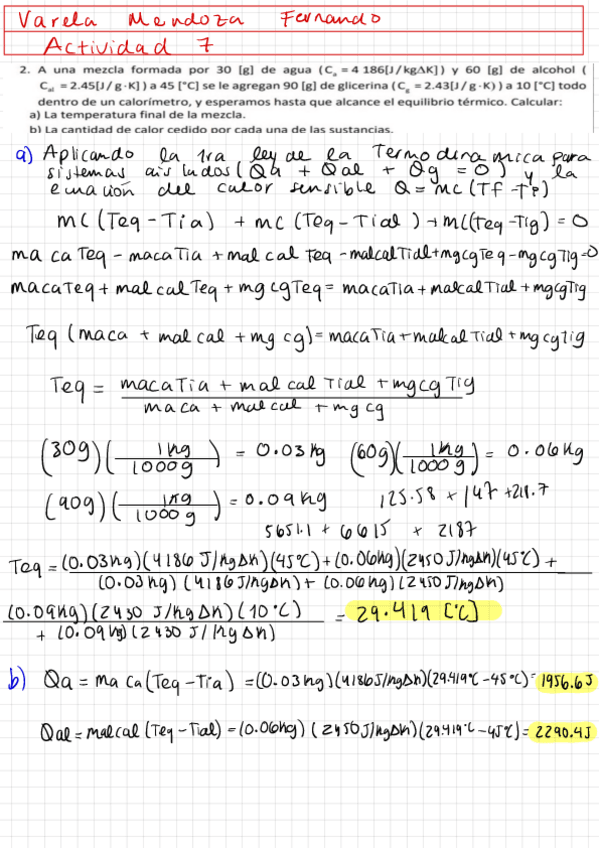 Varela Mendoza Fernando
Actividad 7
2. A una mezcla formada por 30 [g] de agua (Ca = 4 186[J/kgΔK]) y 60 [g] de alcohol (
Cal = 2.45[J/g·K]) a 45 [°C] se le agregan 90 [g] de glicerina (Cg = 2.43[J/g·K]) a 10 [°C] todo
dentro de un calorímetro, y esperamos hasta que alcance el equilibrio térmico. Calcular:
a) La temperatura final de la mezcla.
b) La cantidad de calor cedido por cada una de las sustancias.
a) Aplicando la 1ra ley de la Termodinamica para
sistemas aislados (Qa + Qal + Qg = 0) y la
ecuación del calor sensible Q = mc (Tf - Ti)
mc (Teq - Tia) + mc (Teq - Tial) + mc (Teq - Tig) = 0
ma ca Teq - maca Tia + mal cal Teq - malcal Tial + mgcg Teq - mgcgTig = 0
macaTeq + mal cal Teq + mg cg Teq = macaTia + malcal Tial + mgcgTig
Teq (maca + mal cal + mg cg) = macaTia + malcal Tial + mg cg Tig
Teq = macaTia + mal cal Tial + mgcg Tig
maca + mal cal + mg cg
(30g) (1kg/1000g) = 0.03 kg (60g) (1kg/1000g) = 0.06 kg
(90g) (1kg/1000g) = 0.09 kg 125.58 + 147 + 218.7
5651.1 + 6615 + 2187
Teq = (0.03kg)(4186 J/kgΔK)(45°C) + (0.06kg)(2450 J/kgΔK)(45°C) +
(0.03kg)(4186 J/kgΔK) + (0.06kg)(2450 J/kgΔK)
(0.09kg)(2430 J/kgΔK)(10°C) = 29.419 [°C]
+ (0.09kg)(2430 J/kgΔK)
b) Qa = ma ca (Teq - Tia) = (0.03kg)(4186J/kgΔK)(29.419°C - 45°C) = 1956.6 J
Qal = malcal (Teq - Tial) = (0.06kg)(2450J/kgΔK)(29.419°C - 45°C) = 2290.4J